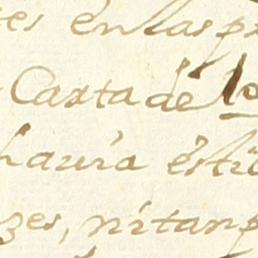 es en las p
Carta de lo
hauia esti
zes, ni tamp